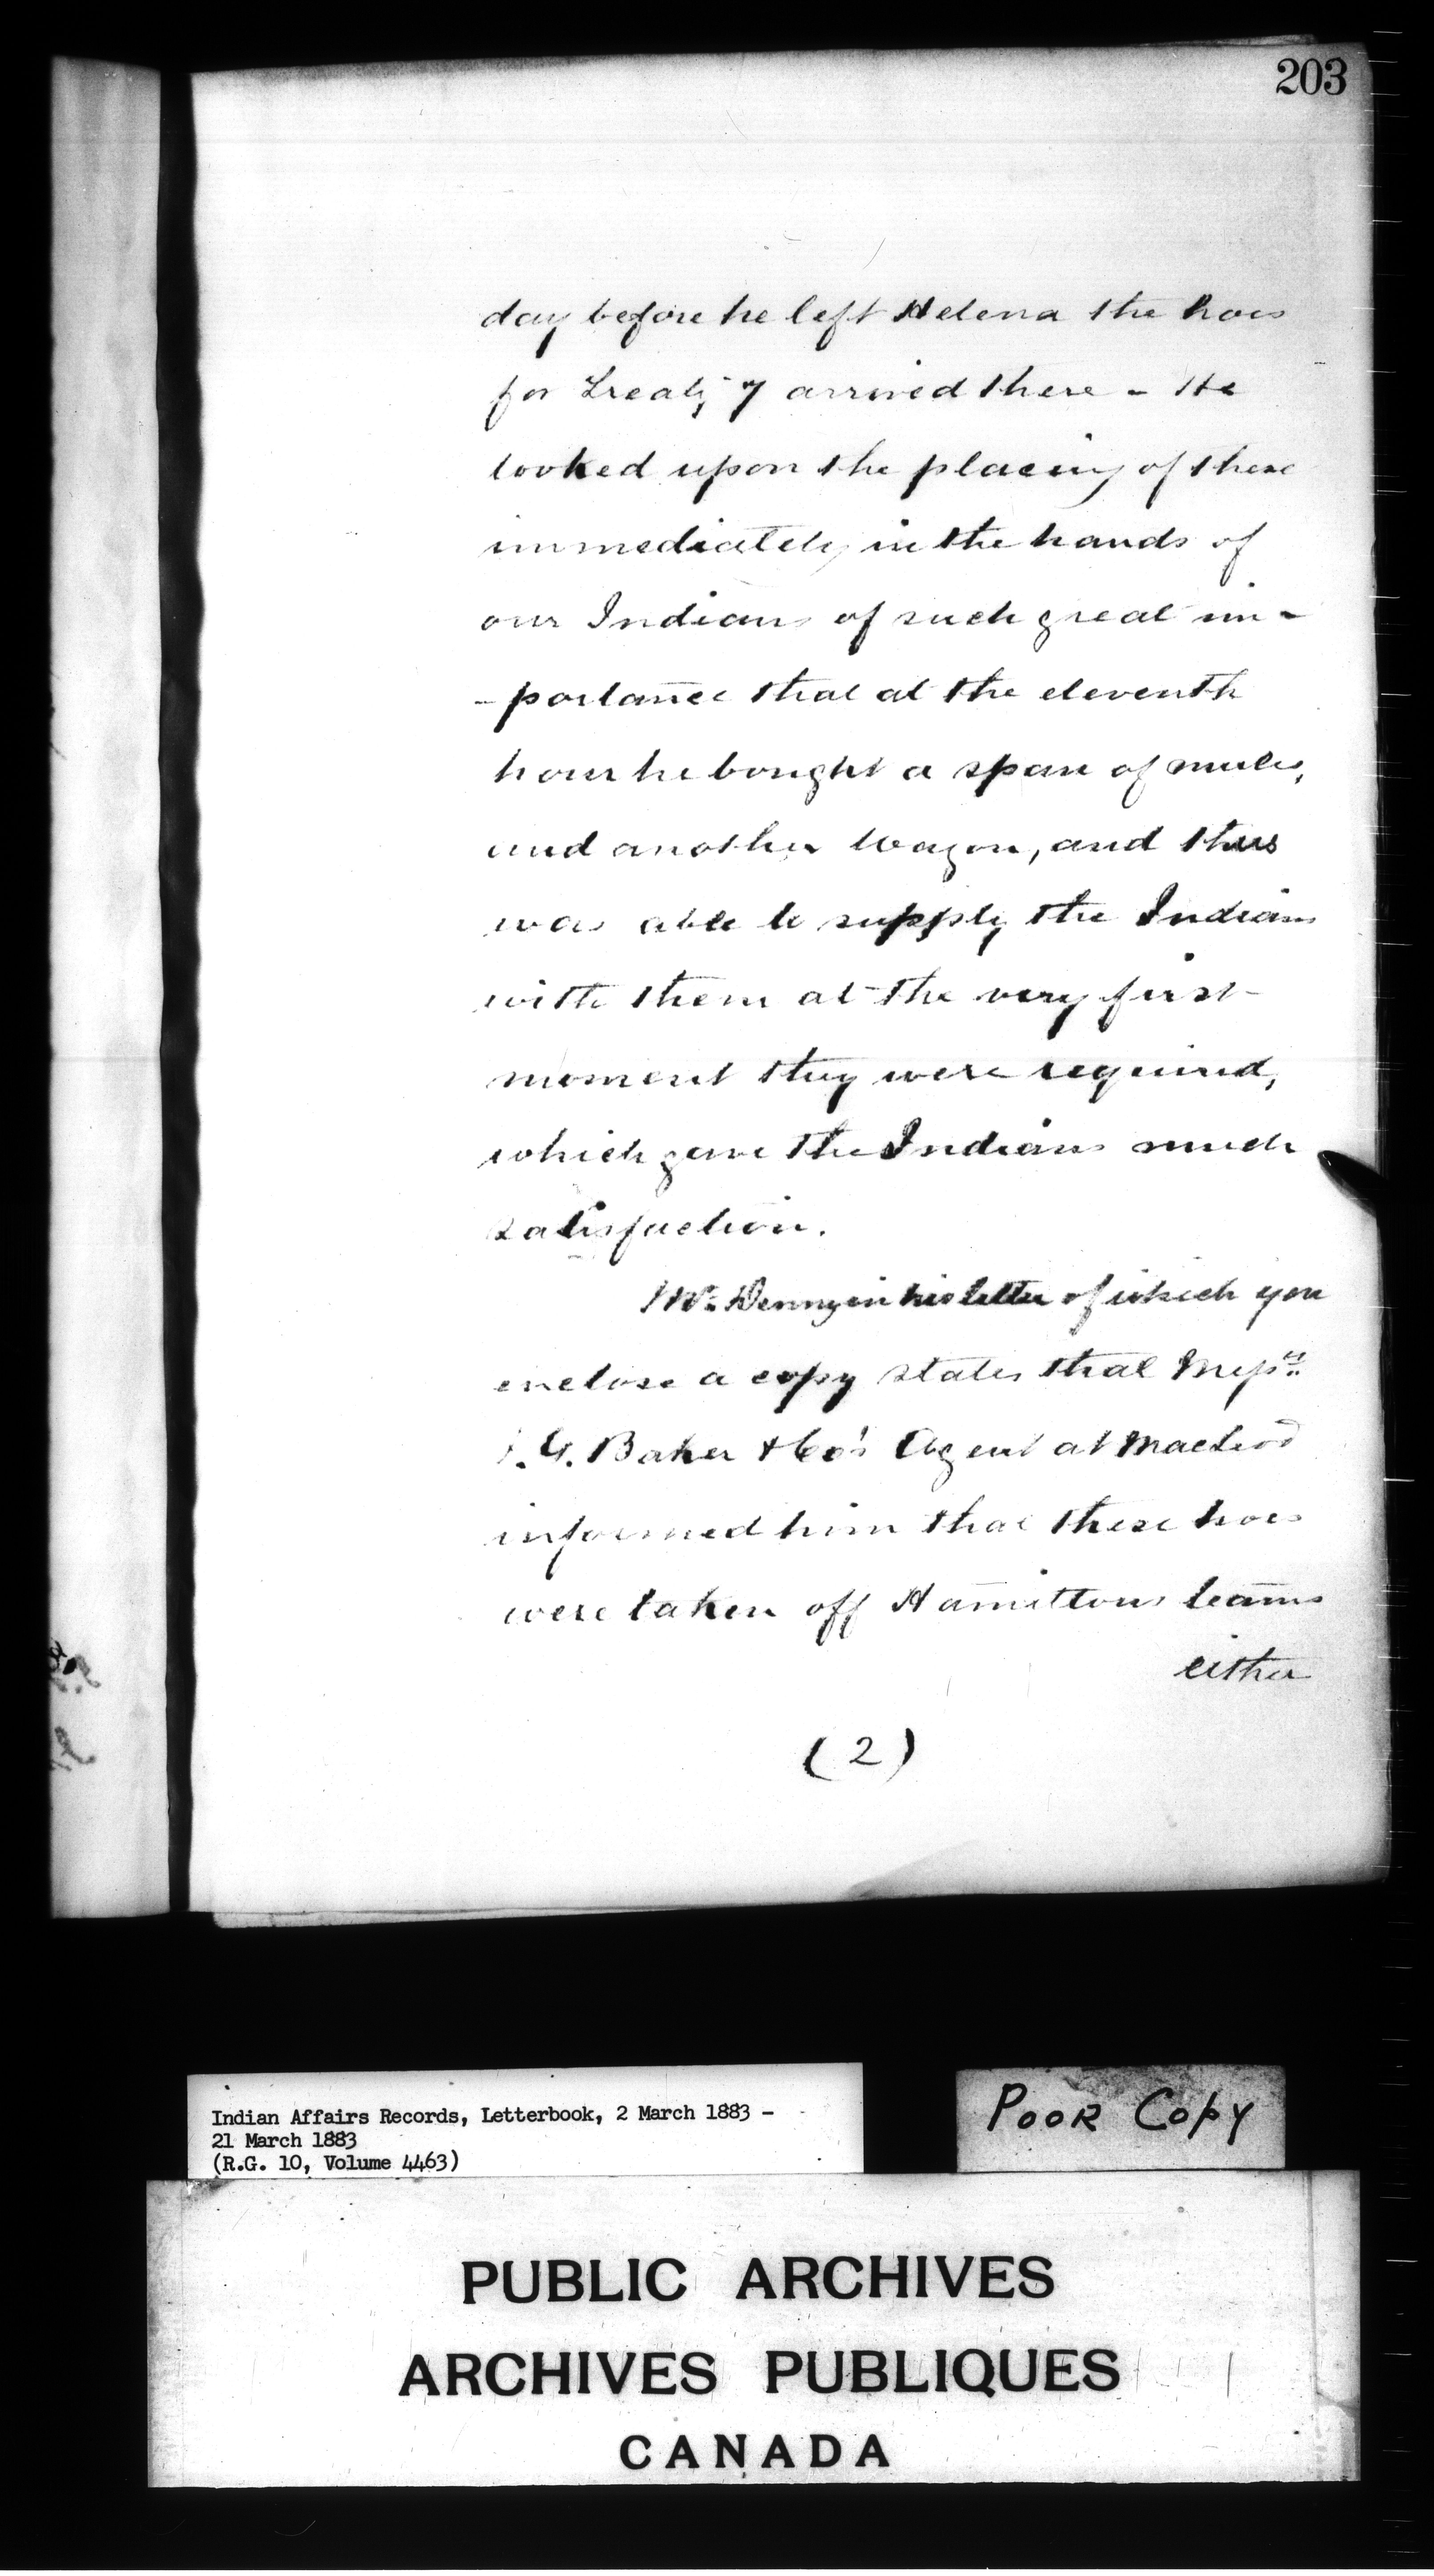 203
day before he left Helena the hoes
for Treaty 7 arrived there - He
looked upon the placing of these
immediately in the hands of
our Indians of such great im-
-portance that at the eleventh
hour he bought a span of mules,
and another wagon, and thus
was able to supply the Indians
with them at the very first
moment they were required,
which gave the Indians much
satisfaction.
Mr. Denny in his letter of which you
enclose a copy states that Messrs.
I. G. Baker & Co's Agent at Macleod
informed him that these hoes
were taken off Hamiltons teams
either
(2)
Indian Affairs Records, Letterbook, 2 March 1883 -
21 March 1883
(R.G. 10, Volume 4463)
POOR COPY
PUBLIC ARCHIVES
ARCHIVES PUBLIQUES
CANADA